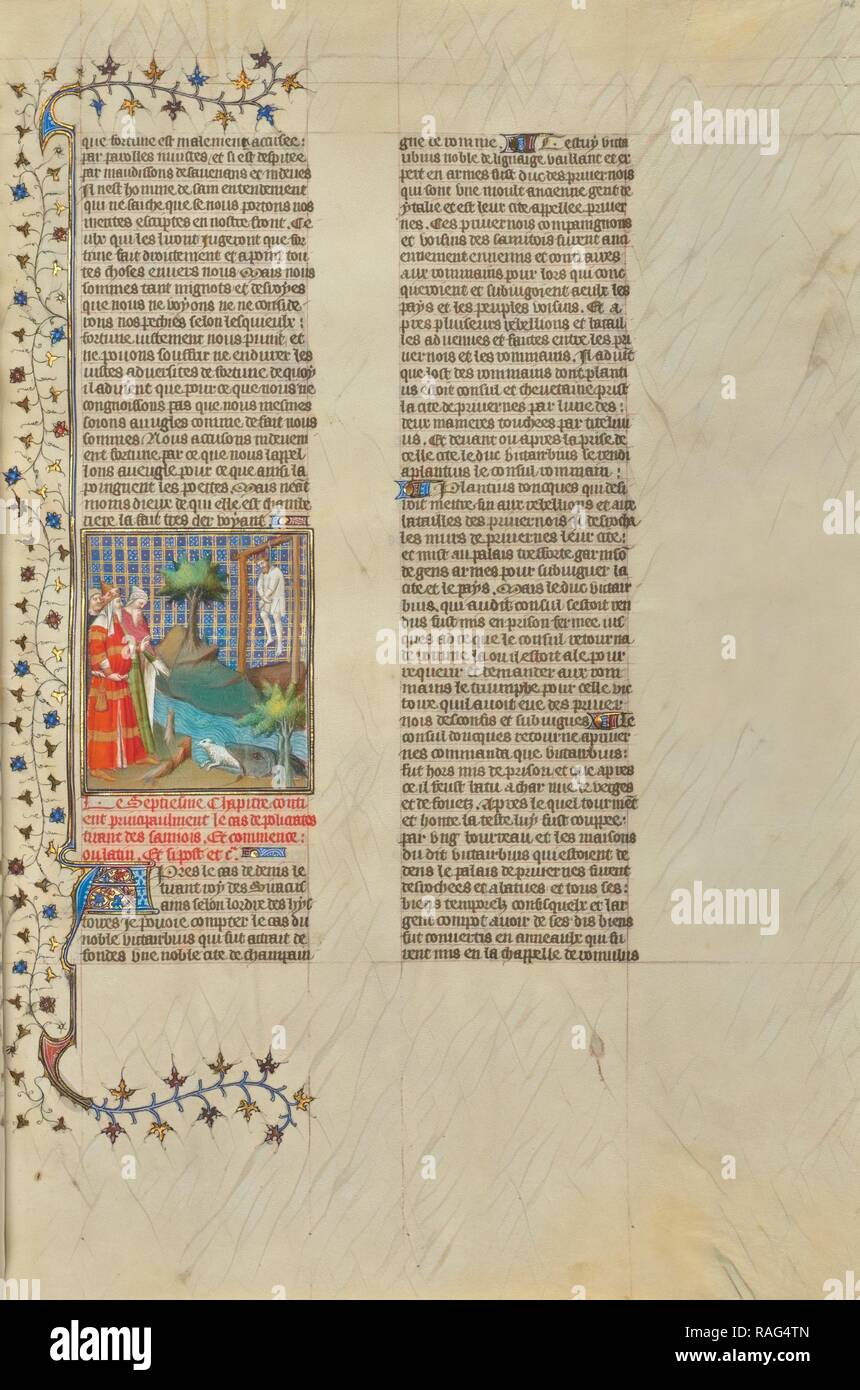 que fortune est malement accusee:
par parolles iniustes, et si est despitee
par maudissons desauenans et indeues
Il nest homme de sain entendement
qui ne sache que se nous portons nos
mentes escriptes en nostre front. Ce
ulx qui les liront jugeront que for
tune fait droitement et apoint tou
tes choses enuers nous Mais nous
sommes tant mignots et desuoyes
que nous ne voyons ne ne conside
rons nos pechies selon lesquieulx:
fortune iustement nous punit et
ne pouons souffrir ne endurer les
iustes aduersites de fortune de quoy
il aduient que pour ce que nous ne
congnoissons pas que nous mesmes
soions aueugles comme de fait nous
sommes Nous accusons indeuem
ent fortune par ce que nous lappel
lons aueugle pour ce que ainsi la
poingnent les poettes. Mais neant
moins dieux de qui elle est chambe
riere la fait tres cler voyant
Le Septiesme Chapitre conti
ent principaulment le cas de policrates
tirant des samiois. Et commence:
ou latin. Et si post et cetera.
Apres le cas de denis le
tirant roy des siracus
ains selon lordre des hys
toires je pouoie compter le cas du
noble vitruuius qui fut attrait de
fondes vne noble cite de champain
gne de romme. Cestuy vitru
uius noble de lignaige vaillant et ex
pert en armes fust duc des priuernois
qui sont vne moult ancienne gent de
ytalie et est leur cite appellee priuer
nes. Ces priuernois compaingnons
et voisins des samitois furent anci
ennement ennemis et contraires
aux rommains pour lors qui conc
queroient et subiugoient a eulx les
pays et les peuples voisins. Et a
pres pluiseurs rebellions et batail
les aduenues et faittes entre les pri
uernois et les rommains. Il aduint
que lost des rommains dont planti
us estoit consul et cheuetaine prist
la cite de priuernes par lune des:
deux manieres touchees par titeliui
us. Et deuant ou apres la prise de
celle cite le duc vitruuius se rendi
a plantius le consul rommain:
Plantius doncques qui desi
roit mettre fin aux rebellions et aux
batailles des priuernois il despecha
les murs de priuernes leur cite:
et mist au palais tresforte garniso
de gens armes pour subiuguer la
cite et le pays. Mais le duc vitru
uius, qui audit consul sestoit ren
dus fust mis en prison fermee. ius
ques a ce que le consul retourna
de romme la ou il estoit ale pour
requerir et demander aux rom
mains le triumphe pour celle vic
toire quil auoit eue des priuer
nois desconfis et subiugues Le
consul doncques retourne a priuer
nes commanda que vitruuius:
fut hors mis de prison et que apres
ce il feust batu a char nue de verges
et de fouetz. Apres le quel tourment
et honte la teste luy fust couppee:
par vng bourreau et les maisons
du dit vitruuius qui estoient de
dens le palais de priuernes furent
despechees et abatues et tous ses:
biens temporelz confisquelx et lar
gent compt auoir de ses dis biens
fut conuertis en anneaulx qui fu
rent mis en la chappelle de romulus
alamy
Image ID: RAG4TN
www.alamy.com